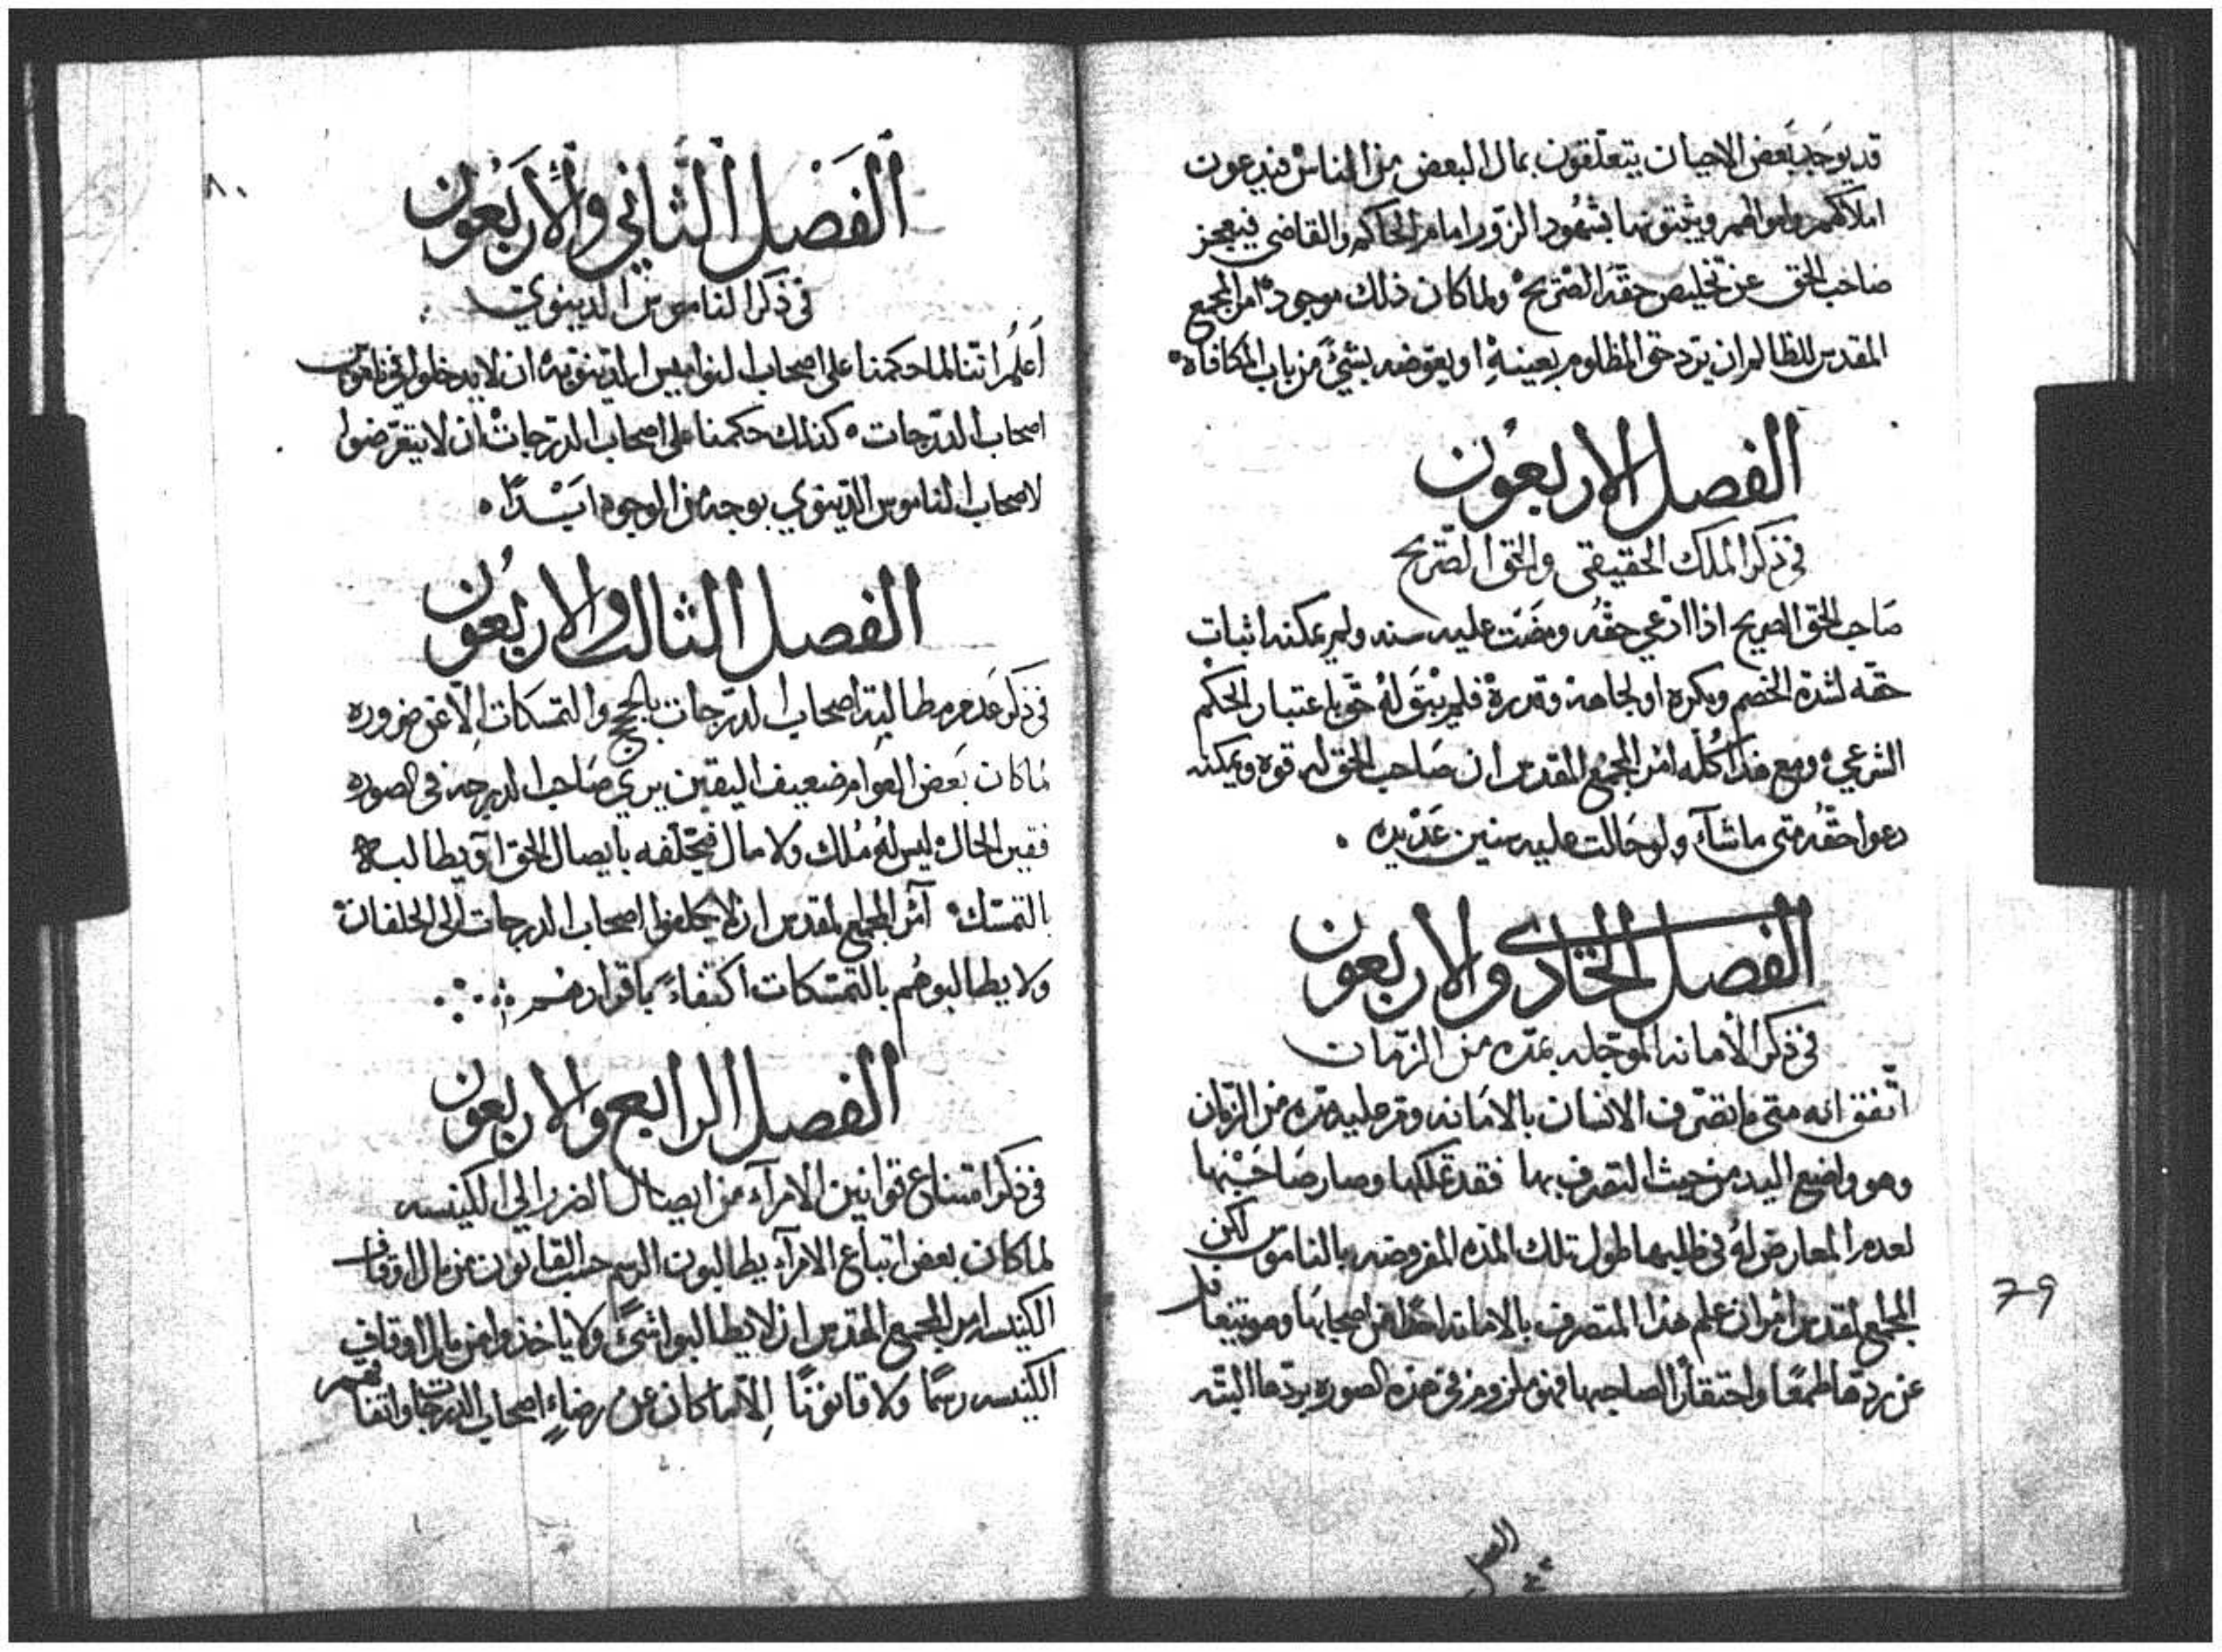 قد يوجد بعض الاحيان يتعلقون بمال البعض من الناس فيدعون
املاكهم واموالهم ويثبتونها بشهود الزور امام الحاكم والقاضي فيعجز
صاحب الحق عن تخليص حقه الصريح ولما كان ذلك موجود امر المجمع
المقدس للظالم ان يرد حق المظلوم بعينه او يعوضه بشئ من باب المكافاه
الفصل الاربعون
في ذكر الملك الحقيقي والحق الصريح
صاحب الحق الصريح اذا ادعي حقه ومضت عليه سنه ولم يمكنه اثبات
حقه لشدة الخصم ومكره او لجاهه وقدرة فلم يبق له حق باعتبار الحكم
الشرعي ومع هذا كله امر المجمع المقدس ان صاحب الحق له قوه ويمكنه
دعوا حقه متى ما شآء ولو حالت عليه سنين عديده
الفصل الحادى والاربعون
في ذكر الأمانه الموجله بمده من الزمان
اتفق انه متى ما تصرف الانسان بالامانه ومر عليه مده من الزمان
وهو واضع اليد من حيث التصرف بها فقد تملكها وصار صاحبها
لعدم المعارض له في طلبها طول تلك المده المفروضه بالناموس لكن
المجمع المقدس امر ان علم هذا المتصرف بالامانه احدا من اصحابها وهو يتغافل
عن ردها طمعا واحتقارا لصاحبها فهو ملزوم في هذه الصوره بردها البته
79
٨٠
الفصل الثاني والأربعون
في ذكر الناموس الدينوي
أعلم اننا لما حكمنا على اصحاب النواميس الدينويه ان لا يدخلوا في قانون
اصحاب الدرجات كذلك حكمنا على اصحاب الدرجات ان لا يتعرضوا
لاصحاب الناموس الدينوي بوجه من الوجوه ابدا
الفصل الثالث والاربعون
في ذكر عدم مطالبة اصحاب الدرجات بالحجج والتمسكات إلا عن ضروره
لما كان بعض العوام ضعيف اليقين يرى صاحب الدرجه في الصوره
فقير الحال ليس له ملك ولا مال فيحلفه بايصال الحق او يطالبه
بالتمسك امر المجمع المقدس ان لا يحلفوا اصحاب الدرجات الى الحلفان
ولا يطالبوهم بالتمسكات اكتفاء باقرارهم
الفصل الرابع والاربعون
في ذكر امتناع قوانين الامرآء من ايصال الضرر الي الكنيسه
لما كان بعض اتباع الامرآء يطالبون الرسم حسب القانون من مال اوقاف
الكنيسه امر المجمع المقدس ان لا يطالبوا شئ ولا ياخذوا من مال اوقاف
الكنيسه رسما ولا قانونا إلا ما كان عن رضاء اصحاب الدرجات واتفاقهم